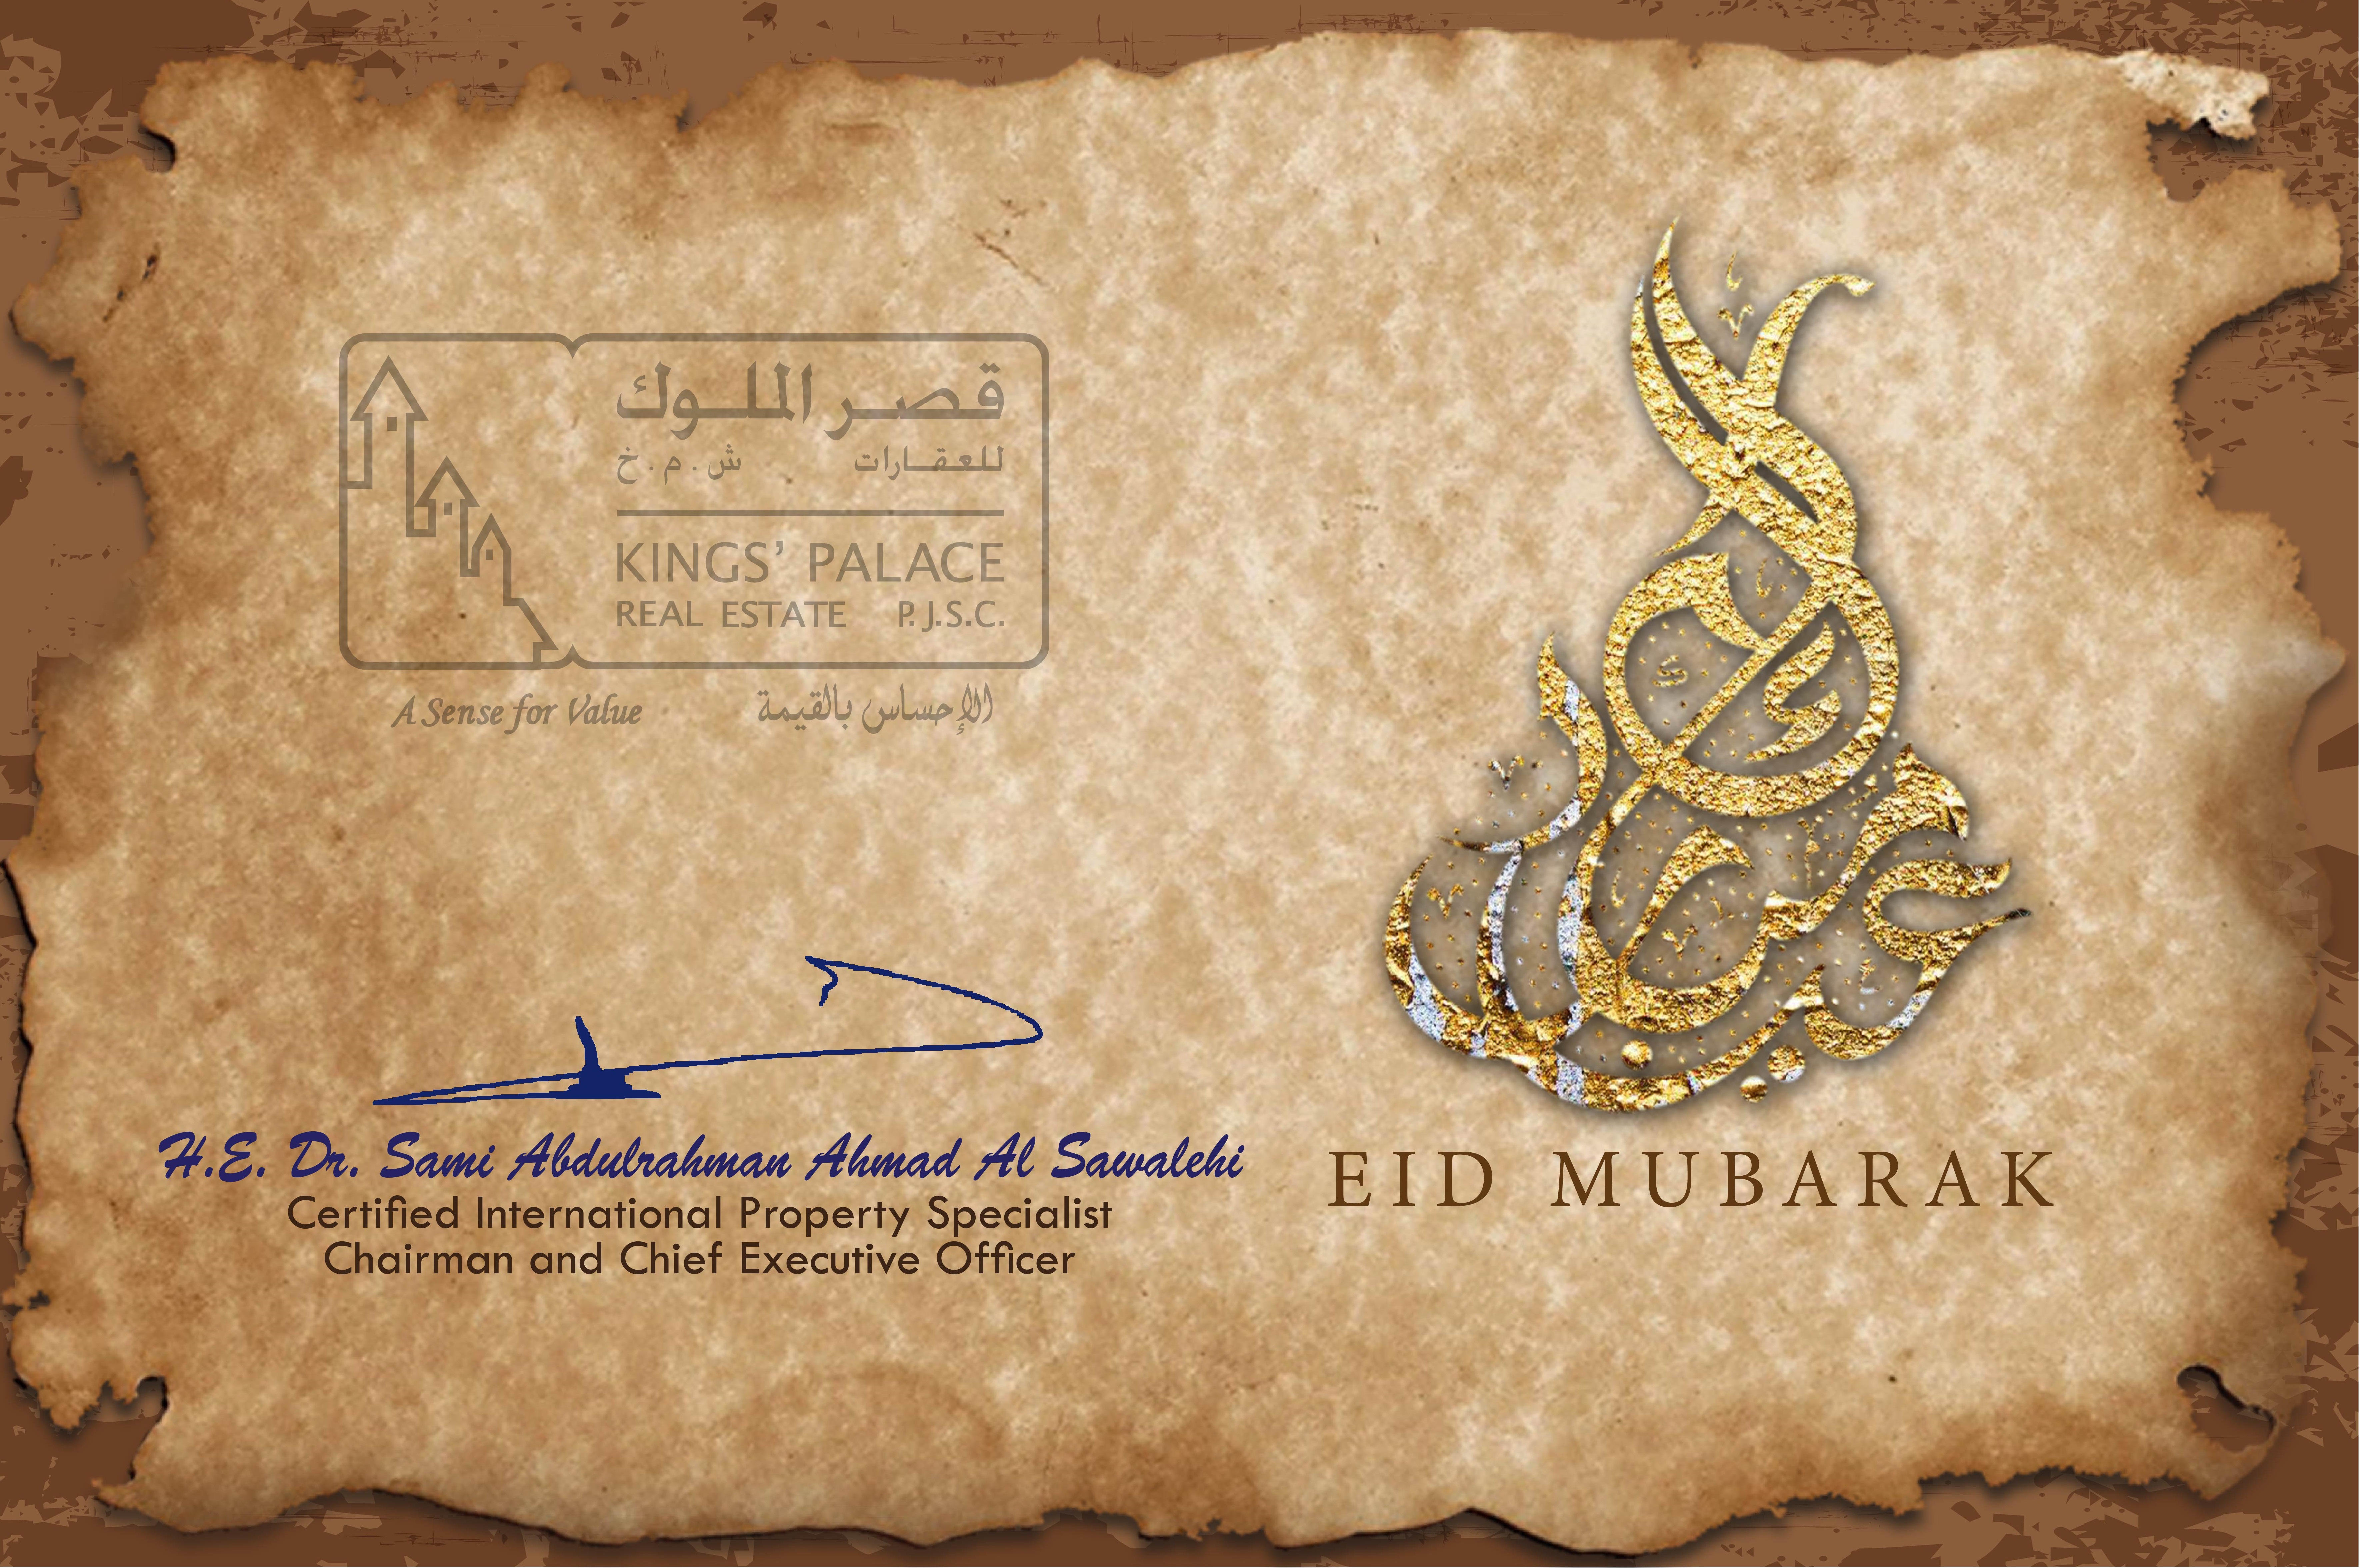 قصر الملوك
للعقارات ش.م.خ
KINGS' PALACE
REAL ESTATE P.J.S.C.
A Sense for Value الإحساس بالقيمة
H.E. Dr. Sami Abdulrahman Ahmad Al Sawalehi
Certified International Property Specialist
Chairman and Chief Executive Officer
EID MUBARAK